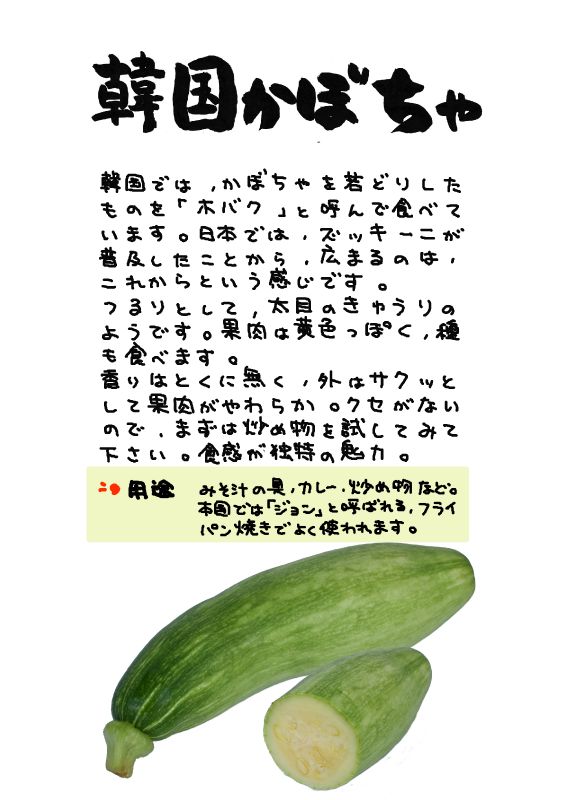 韓国かぼちゃ
韓国では，かぼちゃを若どりした
ものを「ホバク」と呼んで食べて
います。日本では，ズッキーニが
普及したことから，広まるのは，
これからという感じです。
つるりとして，太目のきゅうりの
ようです。果肉は黄色っぽく，種
も食べます。
香りはとくに無く，外はサクッと
して果肉がやわらか。クセがない
ので，まずは炒め物を試してみて
下さい。食感が独特の魅力。
用途
みそ汁の具，カレー，炒め物など。
本国では「ジョン」と呼ばれる，フライ
パン焼きでよく使われます。